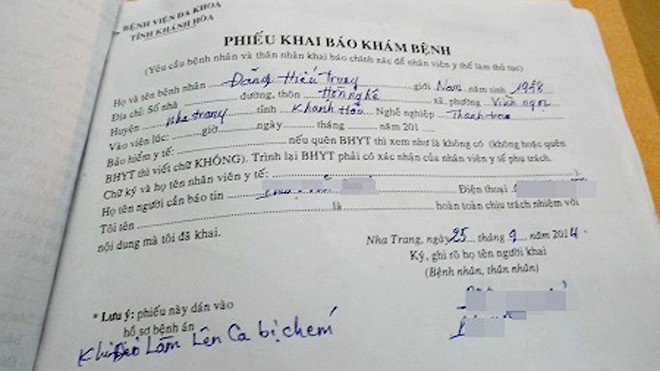 BỆNH VIỆN ĐA KHOA
TỈNH KHÁNH HÒA
PHIẾU KHAI BÁO KHÁM BỆNH
(Yêu cầu bệnh nhân và thân nhân khai báo chính xác để nhân viên y tế làm thủ tục)
Họ và tên bệnh nhân Đặng Hiếu Trung giới Nam năm sinh 1978
Địa chỉ: Số nhà ........ đường, thôn Hòn nghê xã, phường Vĩnh ngọc
Huyện nha trang tỉnh Khánh Hòa Nghề nghiệp Thanh tra
Vào viện lúc: ........ giờ ........ ngày ........ tháng ........ năm 201 ....
Bảo hiểm y tế: ........ nếu quên BHYT thì xem như là không có (không hoặc quên
BHYT thì viết chữ KHÔNG). Trình lại BHYT phải có xác nhận của nhân viên y tế phụ trách.
Chữ ký và họ tên nhân viên y tế: ........ ).
Họ tên người cần báo tin ........ Điện thoại
Tôi tên ........ là ........ hoàn toàn chịu trách nhiệm với
nội dung mà tôi đã khai.
Nha Trang, ngày 25 tháng 9 năm 2014.
Ký, ghi rõ họ tên người khai
(Bệnh nhân, thân nhân)
* Lưu ý: phiếu này dán vào
hồ sơ bệnh án
Làm Lên Ca bị chém